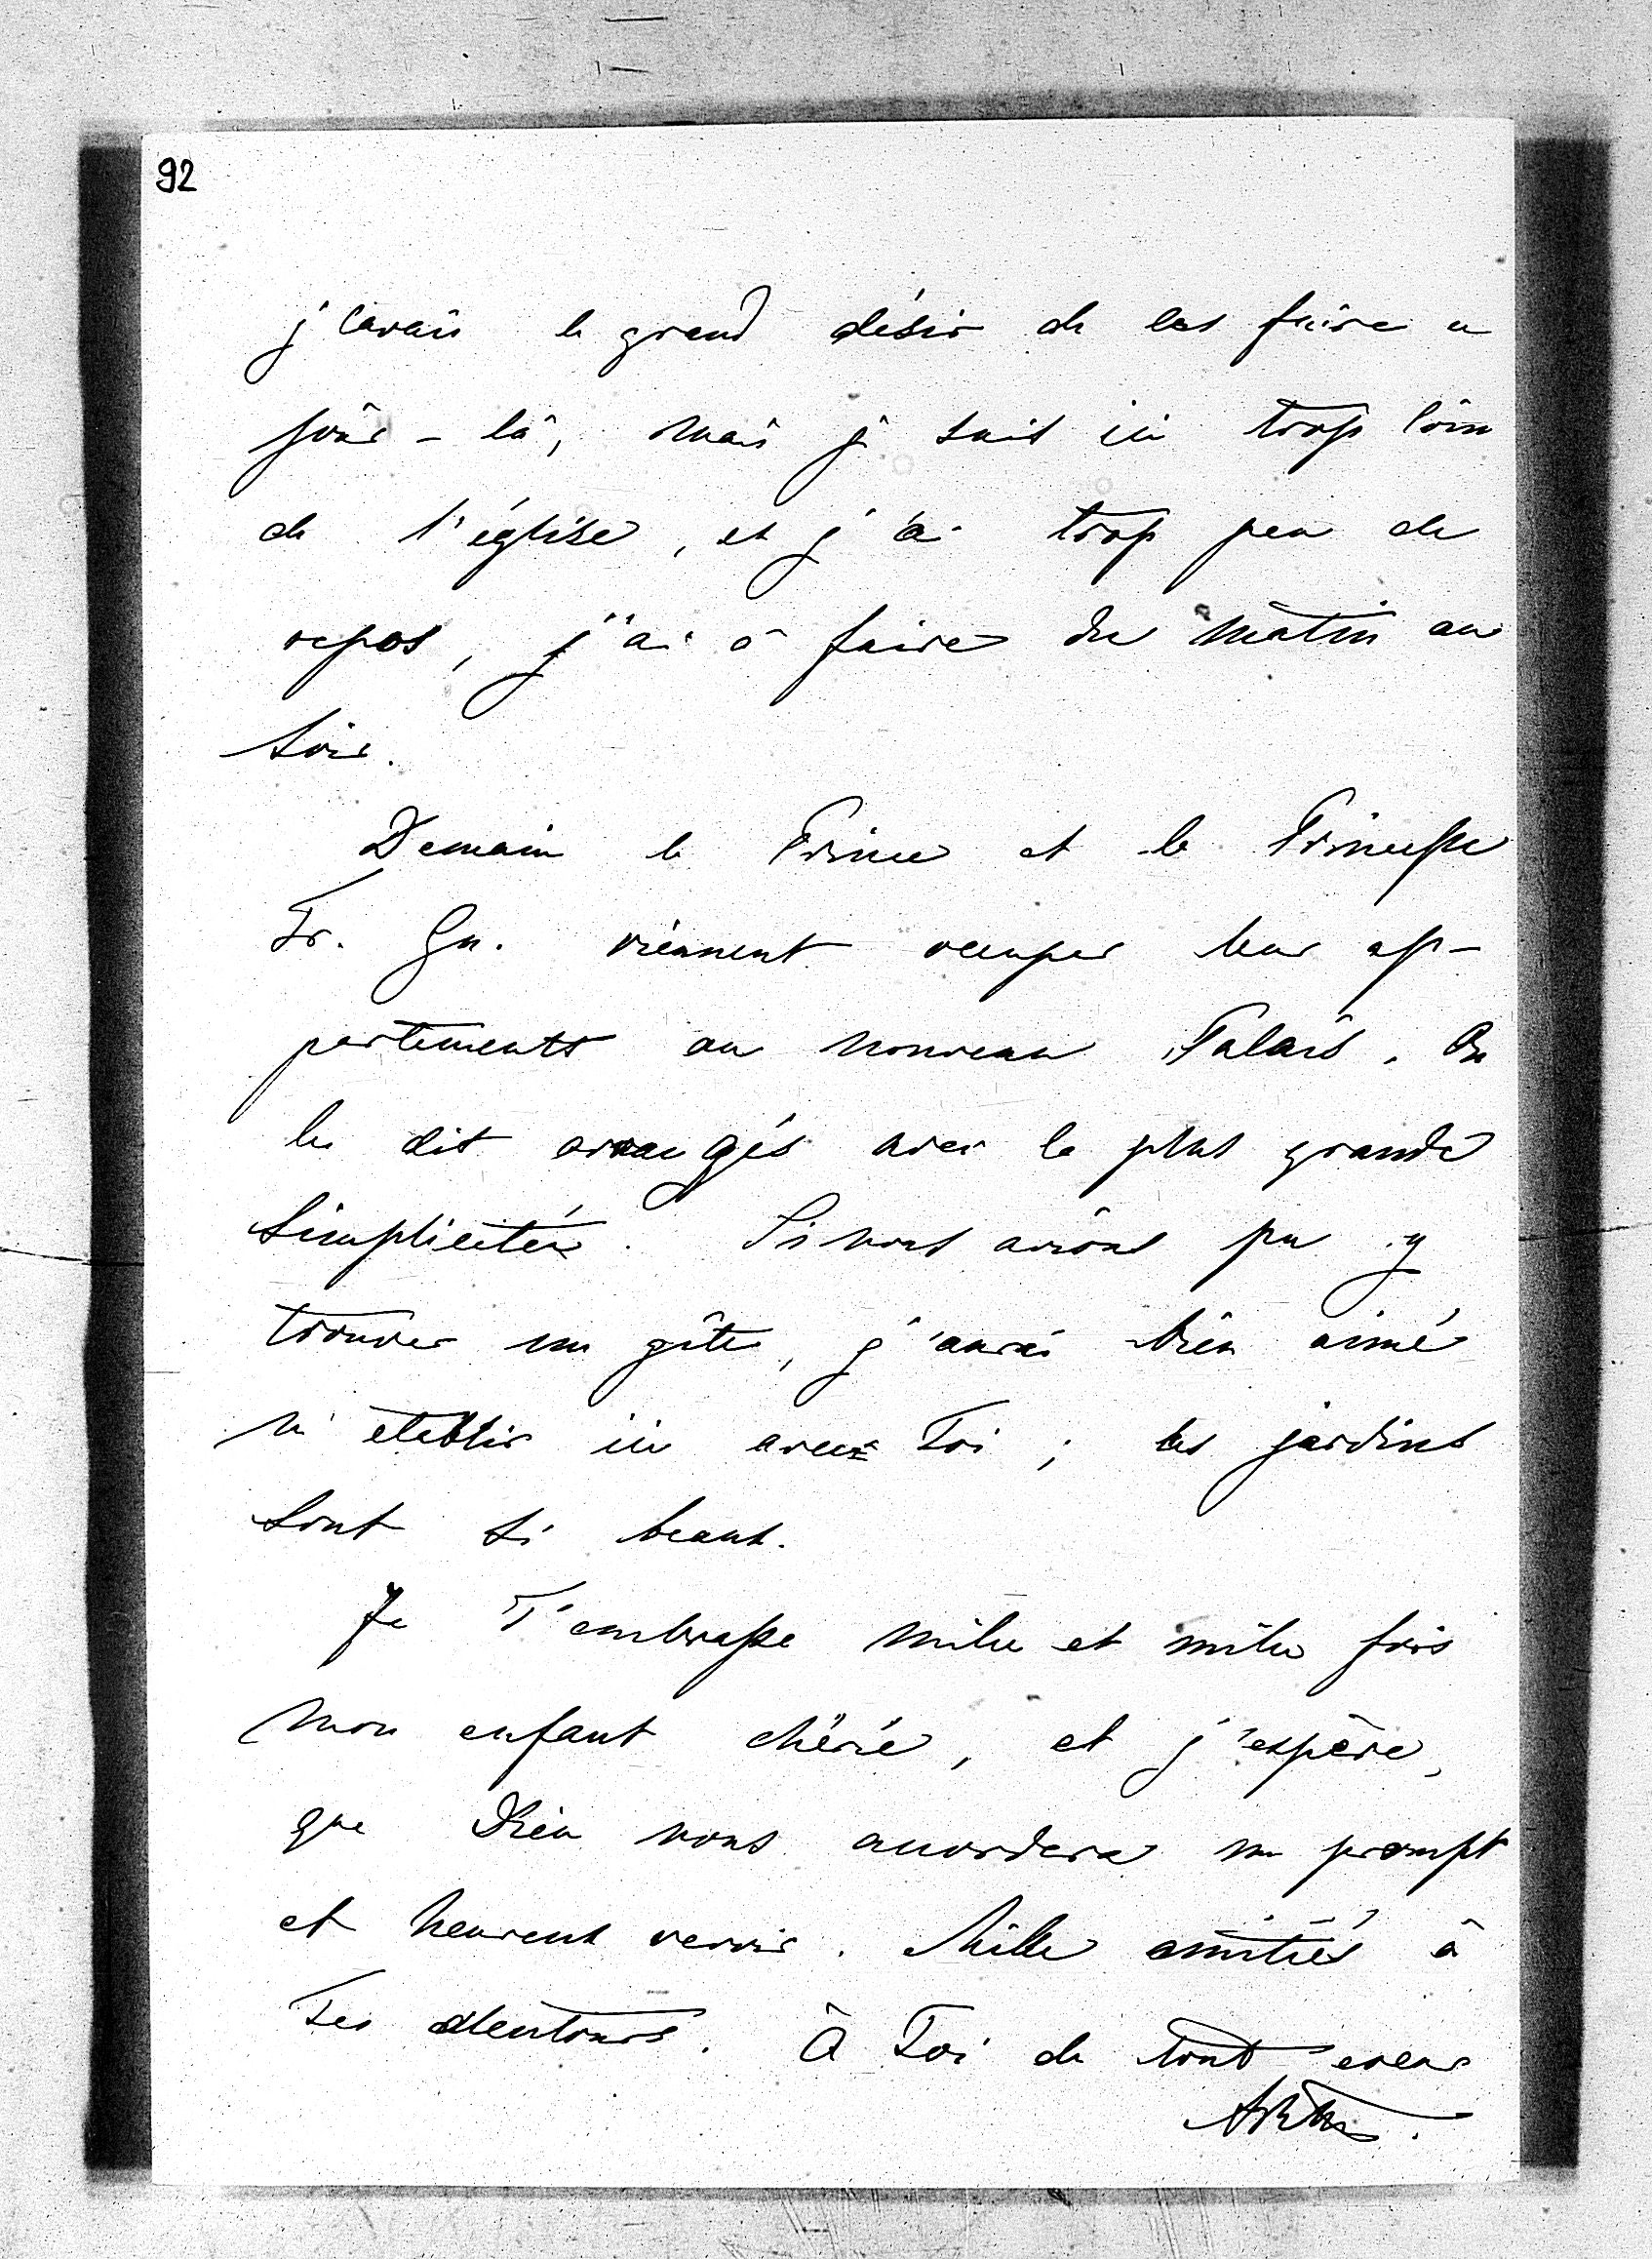 92
j'avais le grand désir de les faire ce
jour-là, mais je suis ici trop loin
de l'église, et j'ai trop peu de
repos, j'ai à faire du matin au
soir.
Demain le Prince et la Princesse
Fr. Gu. viennent occuper leur ap-
partements au nouveau Palais. On
les dit arrangés avec la plus grande
simplicité. Si nous avions pu y
trouver un gîte, j'aurai bien aimé
m'etablir ici avec Toi; les jardins
sont si beaux.
Je T'embrasse mille et mille fois
mon enfant chérie, et j'espère,
que Dieu nous accordera un prompt
et heureux revoir. Mille amitiés à
Tes alentours. à Toi de tout coeur